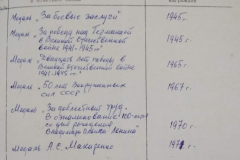 Медаль "За боевые заслуги" 1945г.
Медаль "За победу над Германией
в Великой отечественной
войне 1941-1945гг" 1945г.
Медаль "Двадцать лет победы в
Великой отечественной войне
1941-1945гг." 1965г.
Медаль "50 лет Вооруженных
сил СССР" 1967г.
Медаль "За доблестный труд.
В ознаменование 100-летия
со дня рождения
Владимира Ильича Ленина" 1970г.
Медаль А.С. Макаренко